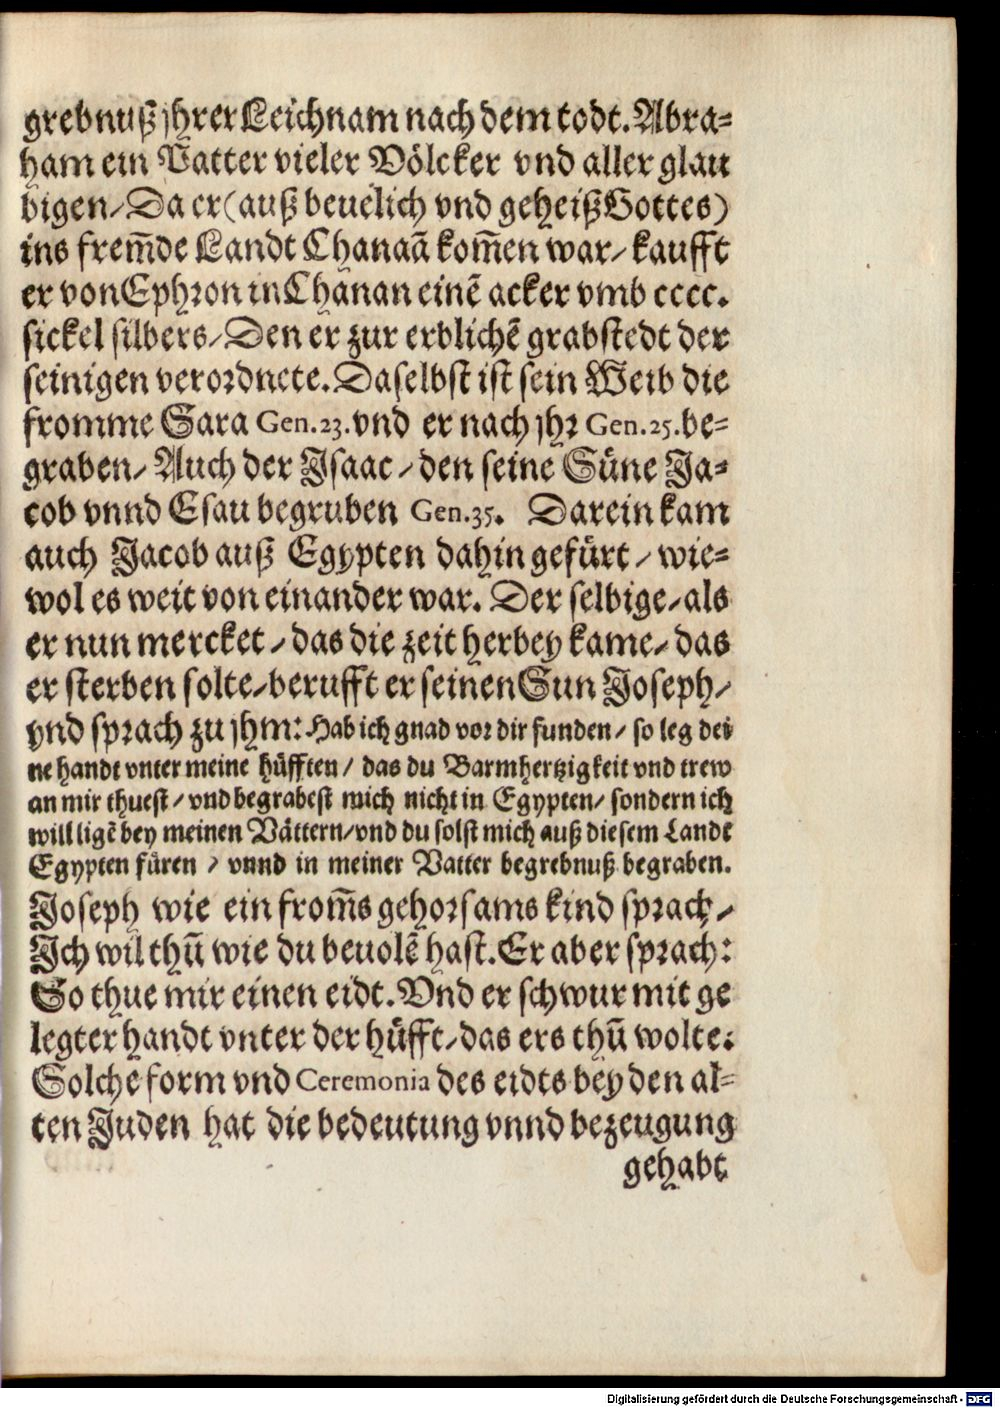 grebnuß jhrer Leichnam nach dem todt. Abra-
ham ein Vatter vieler Völcker vnd aller glau
bigen/ Da er (auß beuelich vnd geheiß Gottes)
ins frem̃de Landt Chanaã kom̃en war/ kaufft
er von Ephron in Chanan einẽ acker vmb cccc.
sickel silbers/ Den er zur erblichẽ grabstedt der
seinigen verordnete. Daselbst ist sein Weib die
fromme Sara Gen. 23. vnd er nach jhr Gen. 25. be-
graben/ Auch der Isaac/ den seine Süne Ja-
cob vnnd Esau begruben Gen. 35. Darein kam
auch Jacob auß Egypten dahin gefürt/ wie-
wol es weit von einander war. Der selbige/ als
er nun mercket/ das die zeit herbey kame/ das
er sterben solte/ berufft er seinen Sun Joseph/
vnd sprach zu jhm: Hab ich gnad vor dir funden/ so leg dei
ne handt vnter meine hüfften/ das du Barmhertzigkeit vnd trew
an mir thuest/ vnd begrabest mich nicht in Egypten/ sondern ich
will ligẽ bey meinen Vättern/ vnd du solst mich auß diesem Lande
Egypten füren/ vnnd in meiner Vatter begrebnuß begraben.
Joseph wie ein from̃s gehorsams kind sprach/
Ich wil thũ wie du beuolẽ hast. Er aber sprach:
So thue mir einen eidt. Vnd er schwur mit ge
legter handt vnter der hüfft/ das ers thũ wolte:
Solche form vnd Ceremonia des eidts bey den al-
ten Juden hat die bedeutung vnnd bezeugung
gehabt
Digitalisierung gefördert durch die Deutsche Forschungsgemeinschaft - DFG